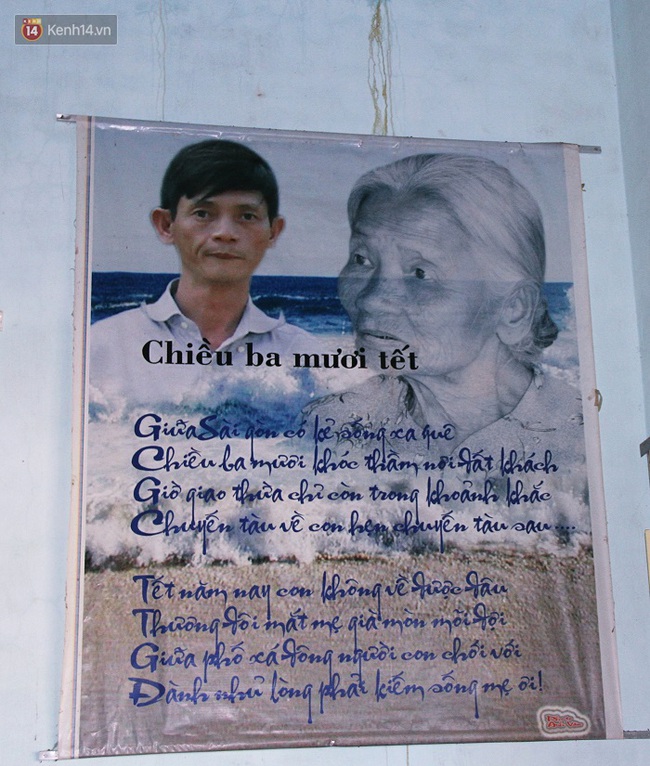 14 Kenh14.vn
Chiều ba mươi tết
Giữa Sài gòn có kẻ sống xa quê
Chiều ba mươi khóc thầm nơi đất khách
Giờ giao thừa chỉ còn trong khoảnh khắc
Chuyến tàu về con hẹn chuyến tàu sau ....
Tết năm nay con không về được đâu
Thương đôi mắt mẹ già mòn mỏi đợi
Giữa phố xá đông người con chới với
Đành nhủ lòng phải kiếm sống mẹ ơi!